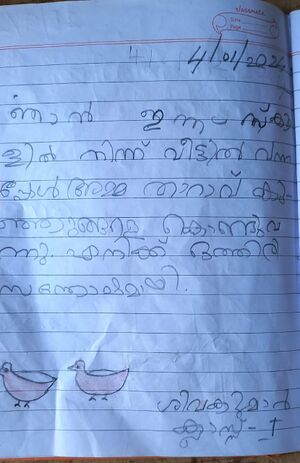 classmate
Date
Page
4/01/2024
ഞാൻ ഇന്ന് സ്കൂ
ളിൽ നിന്ന് വീട്ടിൽ വന്ന
പ്പോൾ അമ്മ താറാവ് കു-
ഞ്ഞുങ്ങളെ കൊണ്ടുവ
ന്നു. എനിക്ക് ഒത്തിരി
സന്തോഷമായി.
ശിവകുമാൻ
ക്ലാസ്സ് - I